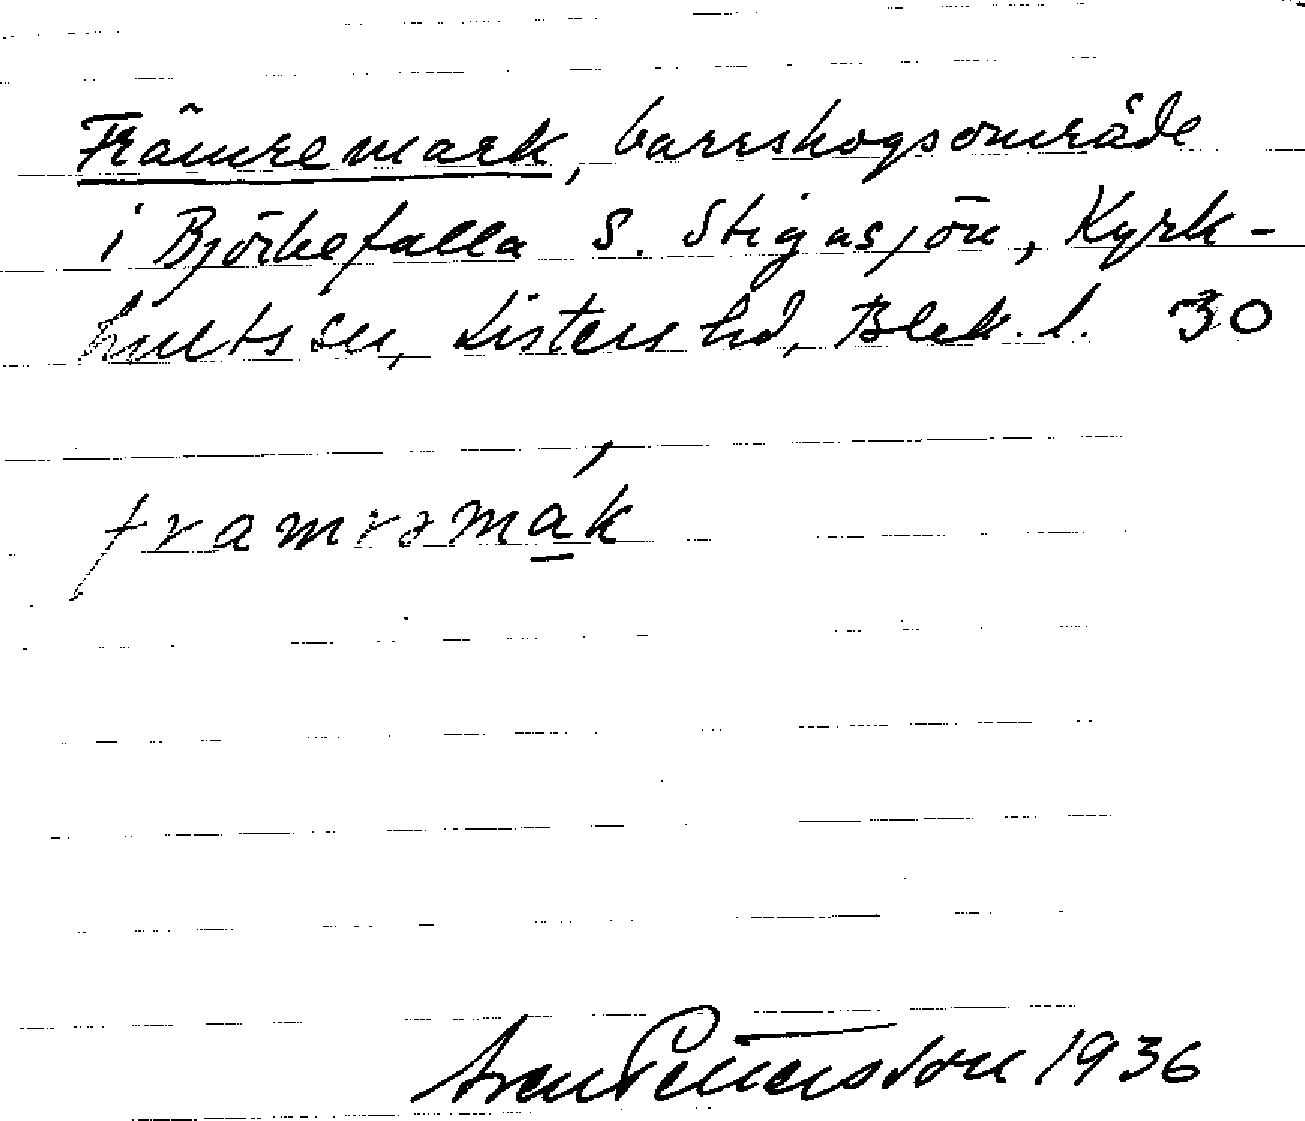 Främremark, barrskogsområde
i Björkefalla S. Stigasjön, Kyrk-
hults sn, Listers hd, Blek. l. 30
framrəmák
Sven Pettersson 1936